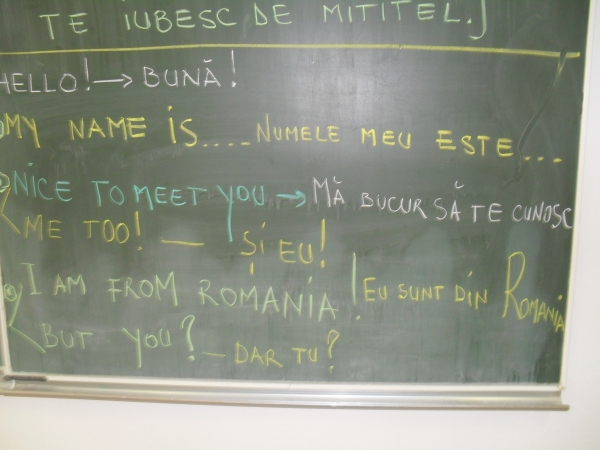 TE IUBESC DE MITITEL.]
HELLO! → BUNĂ!
MY NAME IS.... NUMELE MEU ESTE...
NICE TO MEET YOU → MĂ BUCUR SĂ TE CUNOSC
ME TOO! — ȘI EU!
I AM FROM ROMANIA! EU SUNT DIN ROMANIA
BUT YOU? — DAR TU?